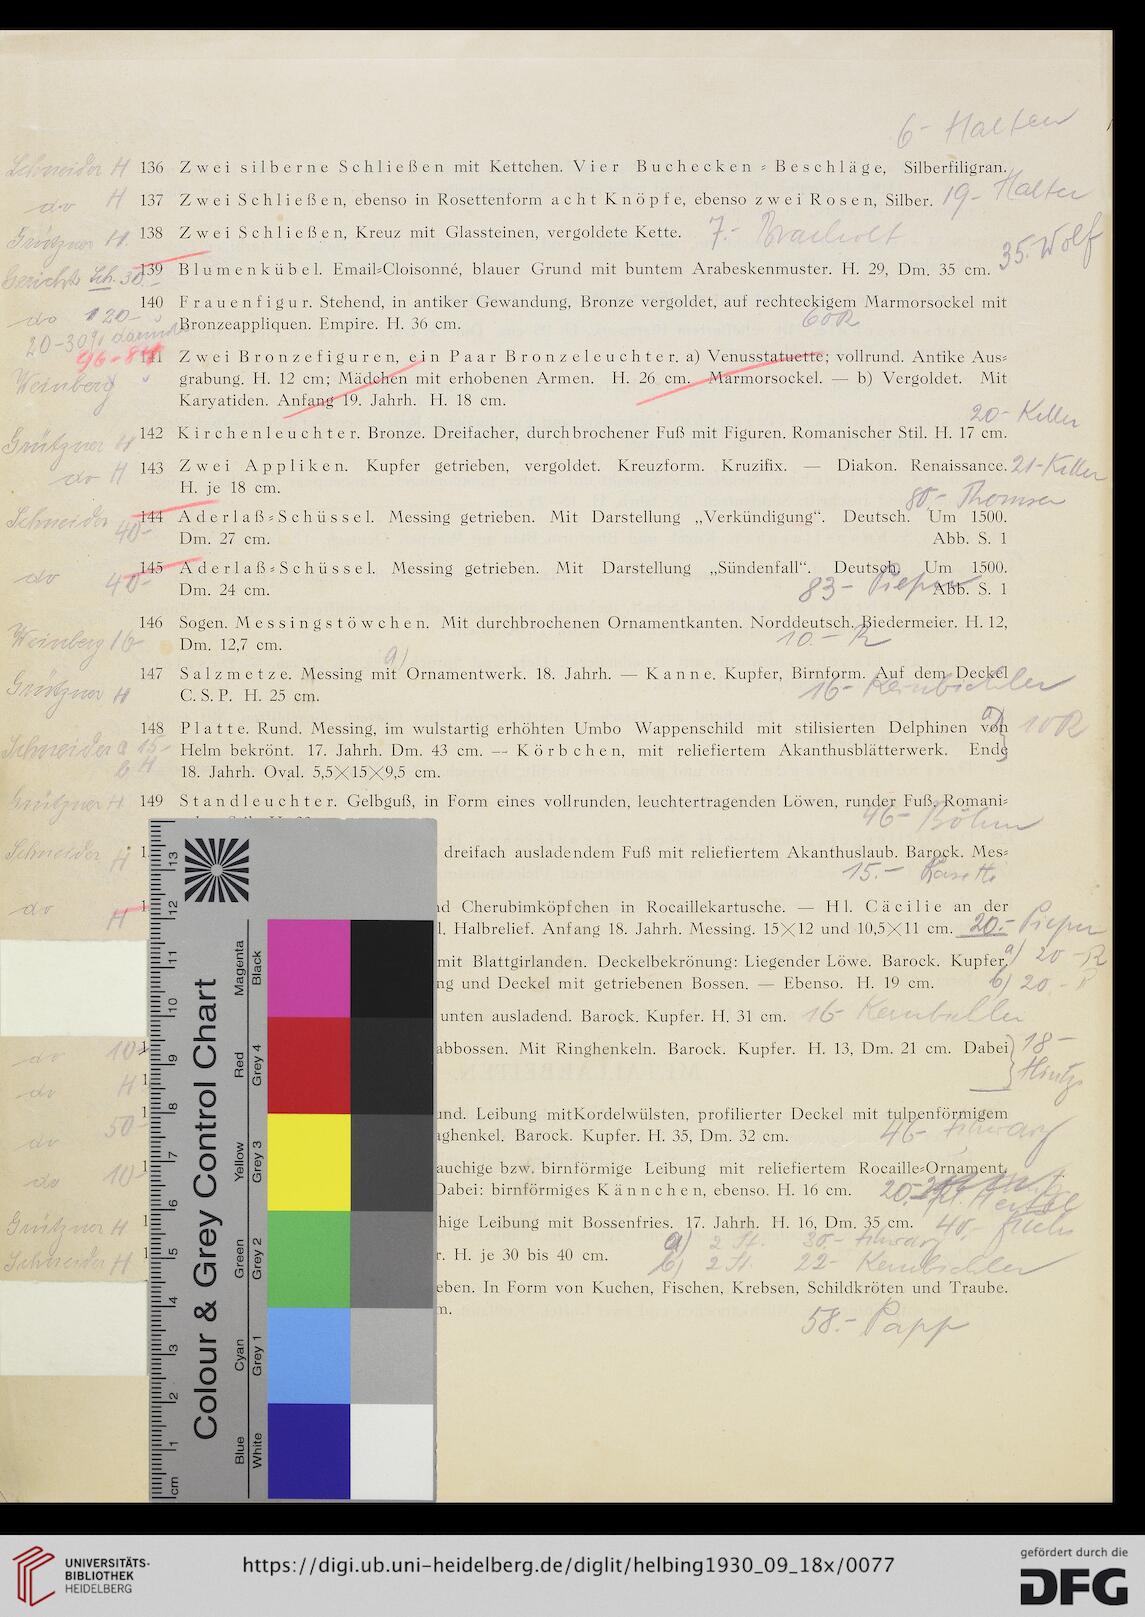 6- Halten
Schneider H 136 Zwei silberne Schließen mit Kettchen. Vier Buchecken-Beschläge, Silberfiligran.
do H 137 Zwei Schließen, ebenso in Rosettenform acht Knöpfe, ebenso zwei Rosen, Silber. 19- Halter
Grützner H. 138 Zwei Schließen, Kreuz mit Glassteinen, vergoldete Kette. 7.-
35. Wolf
139 Blumenkübel. Email-Cloisonné, blauer Grund mit buntem Arabeskenmuster. H. 29, Dm. 35 cm.
140 Frauenfigur. Stehend, in antiker Gewandung, Bronze vergoldet, auf rechteckigem Marmorsockel mit
do 120- Bronzeappliquen. Empire. H. 36 cm. 60 R
20-30%
96-84
141 Zwei Bronzefiguren, ein Paar Bronzeleuchter. a) Venusstatuette; vollrund. Antike Aus-
Weinberg grabung. H. 12 cm; Mädchen mit erhobenen Armen. H. 26 cm. Marmorsockel. — b) Vergoldet. Mit
Karyatiden. Anfang 19. Jahrh. H. 18 cm.
20- Keller
Grützner H 142 Kirchenleuchter. Bronze. Dreifacher, durchbrochener Fuß mit Figuren. Romanischer Stil. H. 17 cm.
do H 143 Zwei Appliken. Kupfer getrieben, vergoldet. Kreuzform. Kruzifix. — Diakon. Renaissance. 21- Keller
H. je 18 cm.
80- Thomsen
Schneider 40- 144 Aderlaß-Schüssel. Messing getrieben. Mit Darstellung „Verkündigung“. Deutsch. Um 1500.
Dm. 27 cm. Abb. S. 1
do 40- 145 Aderlaß-Schüssel. Messing getrieben. Mit Darstellung „Sündenfall“. Deutsch. Um 1500.
Dm. 24 cm. 83- Pieper Abb. S. 1
146 Sogen. Messingstöwchen. Mit durchbrochenen Ornamentkanten. Norddeutsch. Biedermeier. H. 12,
Weinberg Dm. 12,7 cm. 10.- R
a)
Grützner H 147 Salzmetze. Messing mit Ornamentwerk. 18. Jahrh. — Kanne. Kupfer, Birnform. Auf dem Deckel
C. S. P. H. 25 cm. 16- Kernbichler
148 Platte. Rund. Messing, im wulstartig erhöhten Umbo Wappenschild mit stilisierten Delphinen von a) 10 R
Schneider a 15- Helm bekrönt. 17. Jahrh. Dm. 43 cm. — Körbchen, mit reliefiertem Akanthusblätterwerk. Ende
b H 18. Jahrh. Oval. 5,5×15×9,5 cm.
Grützner H 149 Standleuchter. Gelbguß, in Form eines vollrunden, leuchtertragenden Löwen, runder Fuß. Romani-
46- Böhm
Schneider H 1 dreifach ausladendem Fuß mit reliefiertem Akanthuslaub. Barock. Mes-
15.-
do H 1 d Cherubimköpfchen in Rocaillekartusche. — Hl. Cäcilie an der
l. Halbrelief. Anfang 18. Jahrh. Messing. 15×12 und 10,5×11 cm. 20.- Pieper
mit Blattgirlanden. Deckelbekrönung: Liegender Löwe. Barock. Kupfer. a) 20-R
ng und Deckel mit getriebenen Bossen. — Ebenso. H. 19 cm. b) 20.-
unten ausladend. Barock. Kupfer. H. 31 cm. 16- Kernbichler
do 10- abbossen. Mit Ringhenkeln. Barock. Kupfer. H. 13, Dm. 21 cm. Dabei 18-
do H 1
1 und. Leibung mitKordelwülsten, profilierter Deckel mit tulpenförmigem
do 50- aghenkel. Barock. Kupfer. H. 35, Dm. 32 cm. 46- Schwarz
1 auchige bzw. birnförmige Leibung mit reliefiertem Rocaille-Ornament.
do 10- Dabei: birnförmiges Kännchen, ebenso. H. 16 cm. 20.-
Grützner H 1 hige Leibung mit Bossenfries. 17. Jahrh. H. 16, Dm. 35 cm. 40,- Fuchs
a) 2 St. 30.- Schwarz
Schneider H 1 r. H. je 30 bis 40 cm. b) 2 St. 22- Kernbichler
eben. In Form von Kuchen, Fischen, Krebsen, Schildkröten und Traube.
m.
58.- Papp
Colour & Grey Control Chart
Magenta Black
Red Grey 4
Yellow Grey 3
Green Grey 2
Cyan Grey 1
Blue White
cm 1 2 3 4 5 6 7 8 9 10 11 12 13
UNIVERSITÄTS-
BIBLIOTHEK
HEIDELBERG
https://digi.ub.uni-heidelberg.de/diglit/helbing1930_09_18x/0077
gefördert durch die
DFG